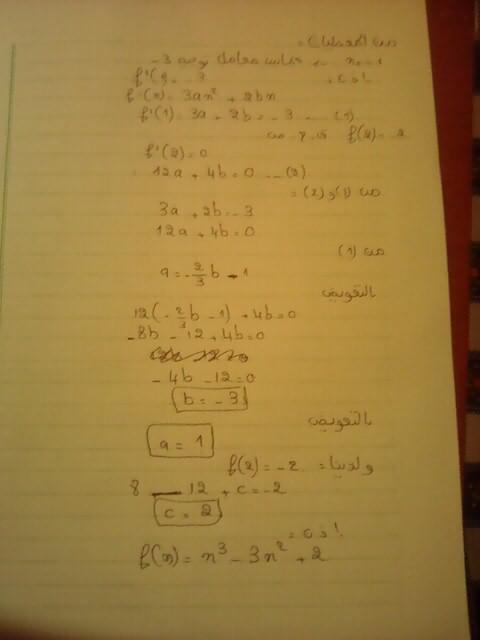 من المعطيات =
x₀ = 1 مماس معامل توجيهه -3
إذن f'(1) = -3
f'(x) = 3ax² + 2bx
f'(1) = 3a + 2b = -3 ... (1)
f(2) = -2
f'(2) = 0
12a + 4b = 0 ... (2)
من (1) و (2) =
3a + 2b = -3
12a + 4b = 0
من (1)
a = -2/3 b - 1
بالتعويض
12(-2/3 b - 1) + 4b = 0
-8b - 12 + 4b = 0
-4b - 12 = 0
b = -3
بالتعويض
a = 1
ولدينا = f(2) = -2
8 - 12 + c = -2
c = 2
إذن =
f(x) = x³ - 3x² + 2